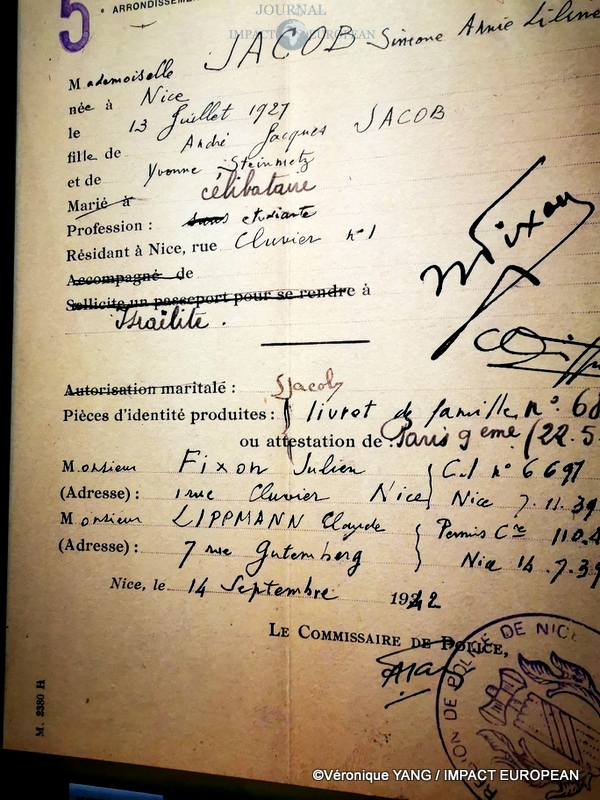 5 e ARRONDISSEMENT
JOURNAL
IMPACT EUROPEAN
Mademoiselle JACOB Simone Annie Liline
née à Nice
le 13 Juillet 1927
fille de André Jacques JACOB
et de Yvonne Steinmetz
Marié à célibataire
Profession : sans etudiante
Résidant à Nice, rue Cluvier n° 1
Accompagné de
Sollicite un passeport pour se rendre à
Israëlite.
Fixon
Autorisation maritale : SJacob
Pièces d'identité produites : livret de famille n° 68
ou attestation de Paris 9 eme (22.5
Monsieur Fixon Julien C.I n° 6697
(Adresse) : 1 rue Cluvier Nice Nice 7.11.39
Monsieur LIPPMANN Claude Permis Cre 110.4
(Adresse) : 7 rue Gutemberg Nice 14.7.39
Nice, le 14 Septembre 1942
LE COMMISSAIRE DE POLICE,
DE POLICE DE NICE
M. 2380 H
©Véronique YANG / IMPACT EUROPEAN